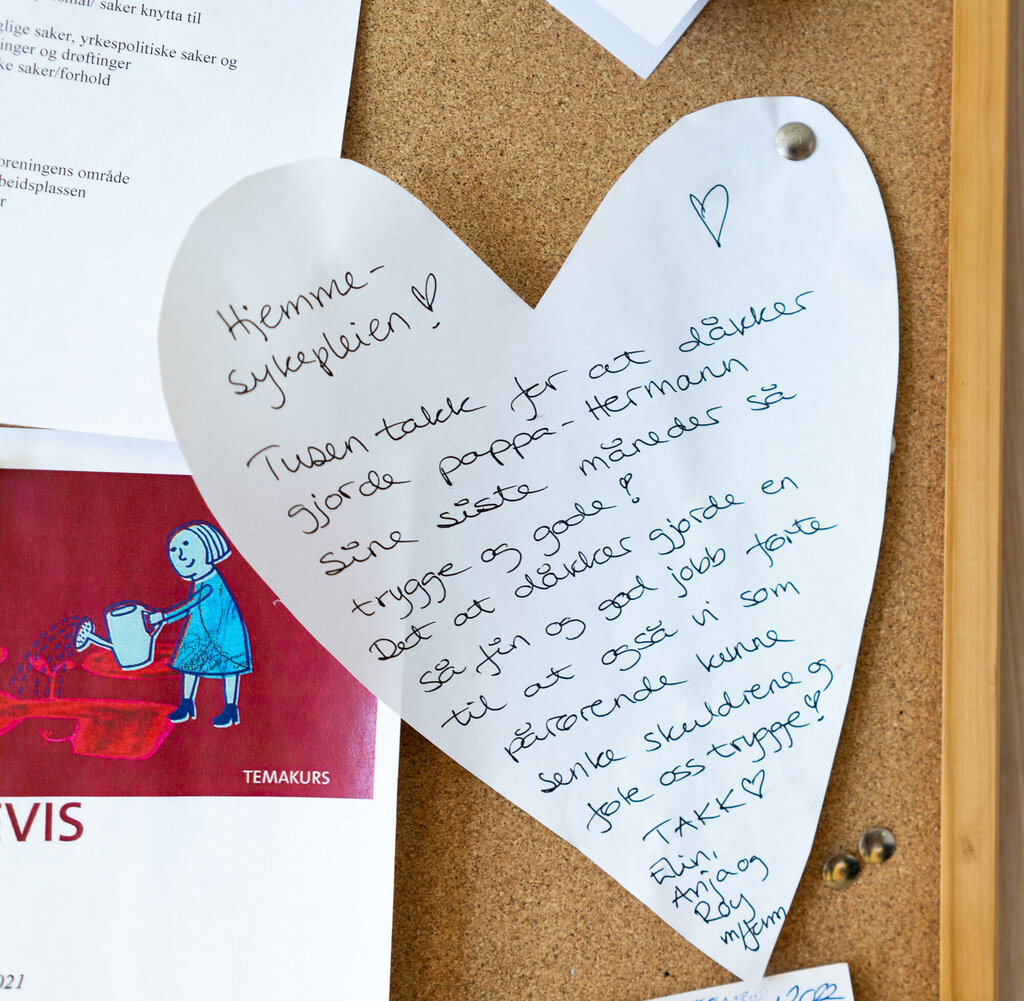 saker knytta til
glige saker, yrkespolitiske saker og
inger og drøftinger
ke saker/forhold
oreningens område
beidsplassen
r
Hjemme-
sykepleien!
Tusen takk for at dåkker
gjorde pappa-Hermann
sine siste måneder så
trygge og gode!
Det at dåkker gjorde en
så fin og god jobb førte
til at også vi som
pårørende kunne
senke skuldrene og
føle oss trygge!
TAKK
Elin,
Anja og
Roy
m/fam
TEMAKURS
EVIS
021
2022